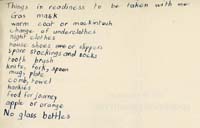 Things in readiness to be taken with me
Gas mask
warm coat or mackintosh
change of underclothes
night clothes
house shoes one or slippers
spare stockings and socks
tooth brush
knife, fork, spoon
mug, plate
comb, towel
hankies
food for journey
apple or orange
No glass bottles